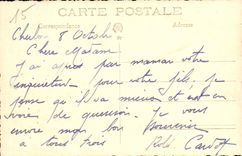 15
CARTE POSTALE
Correspondance
Adresse
8 Octobre
Chere Madame
J'ai appris par maman votre
inquiétude pour votre fils. je
pense qu'il va mieux et est en
voie de guerison. Je vous
envoie mon bon souvenir
a tous trois